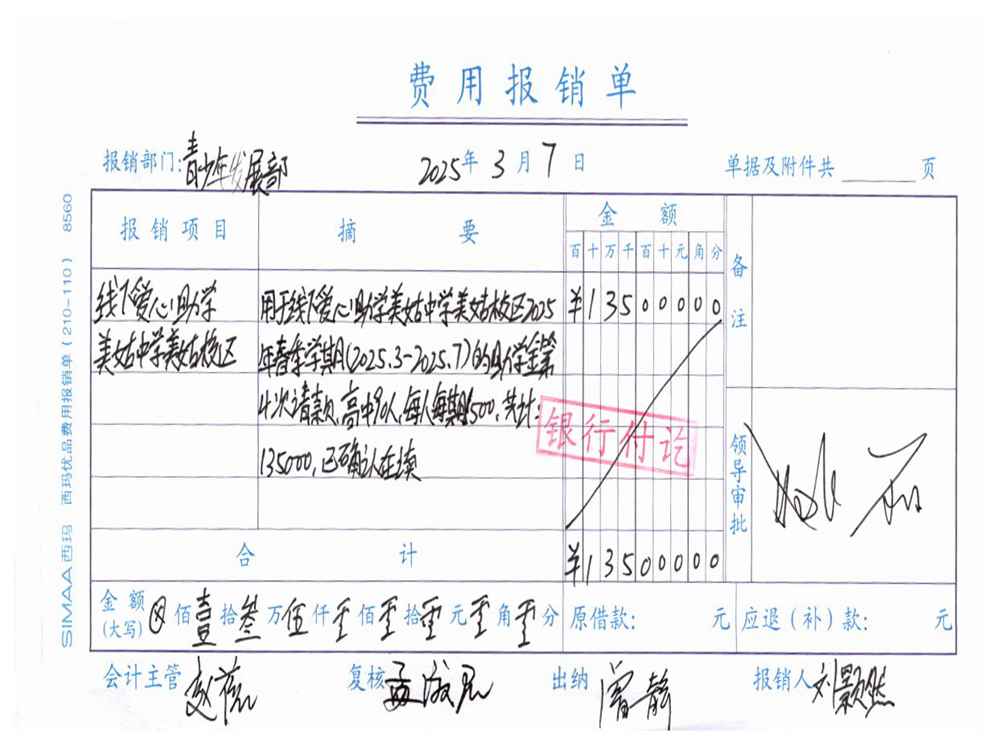 费用报销单
报销部门:青少年发展部 2025年3月7日 单据及附件共 页
报销项目 摘要 金额 备注
百十万千百十元角分
线下爱心助学 用于线下爱心助学美姑中学美姑校区2025 ¥13500000
美姑中学美姑校区 年春季学期(2025.3-2025.7)的助学金第
4次请款,高中90人,每人每期1500,共计:
135000,已确认在读
银行付讫
领导审批
合计 ¥13500000
金额(大写) ⊗佰壹拾叁万伍仟零佰零拾零元零角零分 原借款: 元 应退(补)款: 元
会计主管 复核 出纳 曾静 报销人 刘颢然
SIMAA西玛 西玛优品费用报销单(210-110) 8560